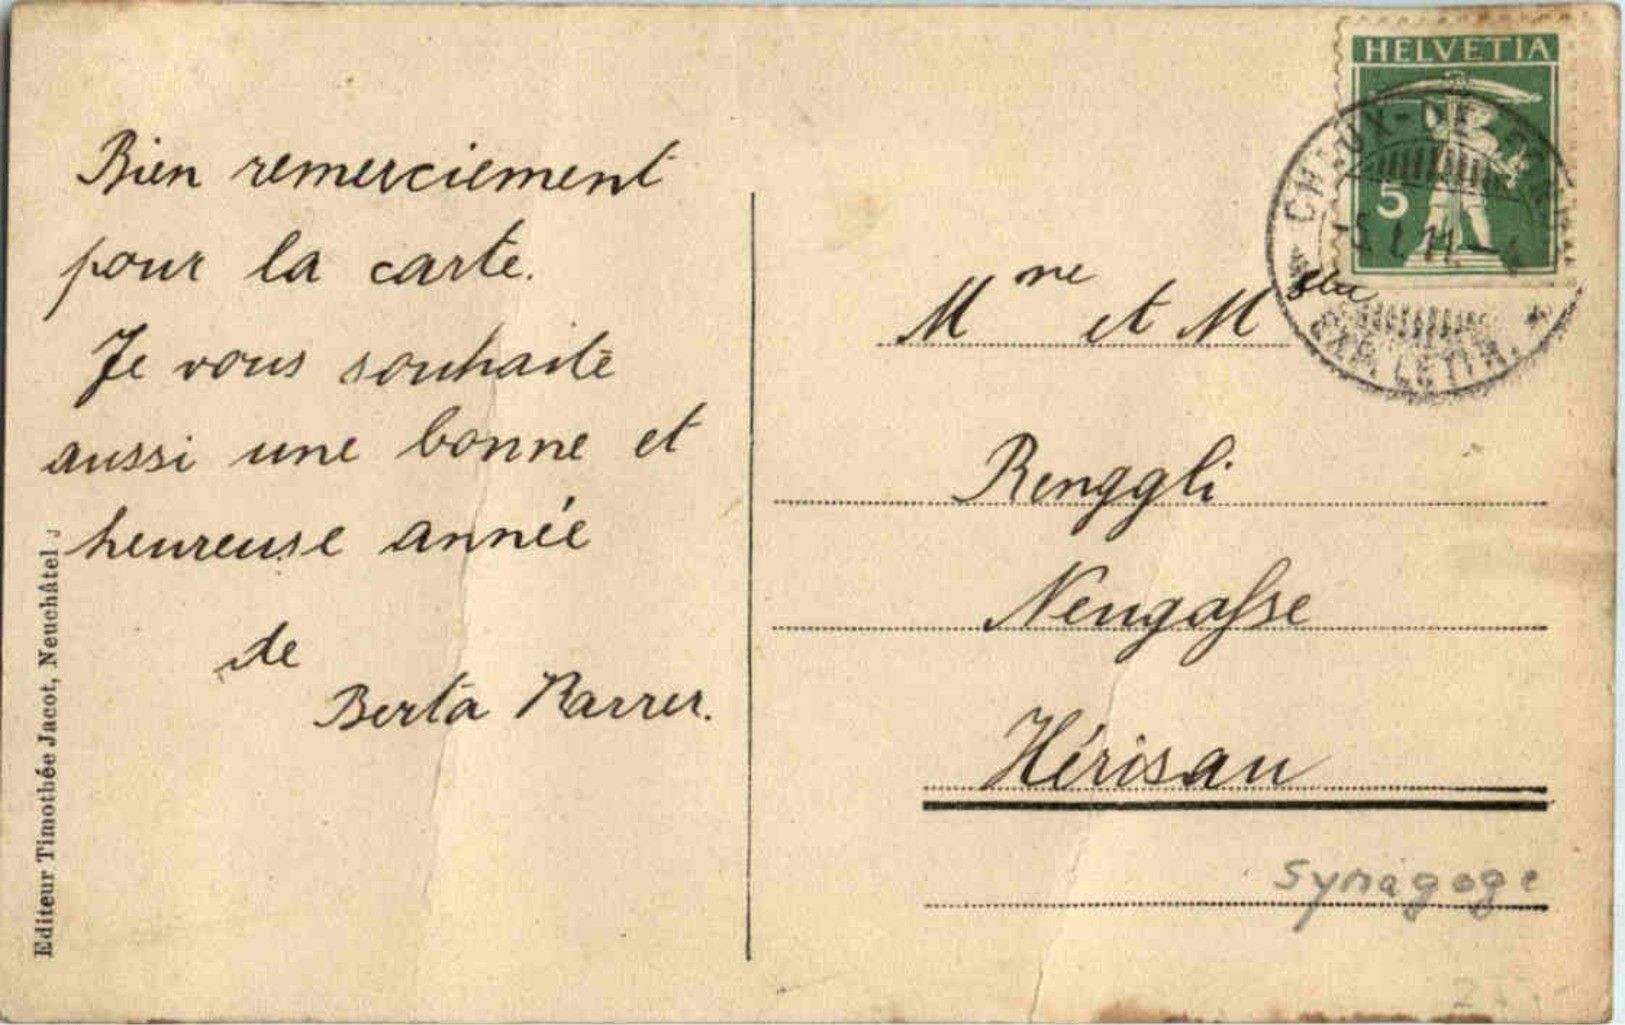 Bien remerciement
pour la carte.
Je vous souhaite
aussi une bonne et
heureuse année
de
Berta Karrer.
Editeur Timothée Jacot, Neuchâtel
HELVETIA
5
EXP. LETTR.
Mme et Mslle
Renggli
Neugasse
Hérisau
Synagoge